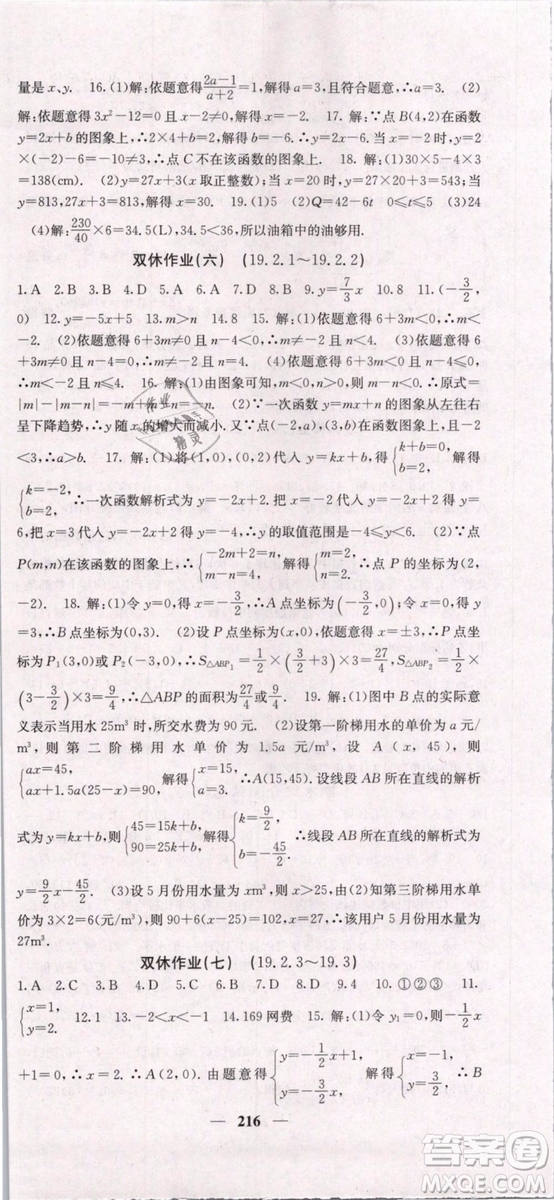 量是 x、y. 16.(1)解:依题意得(2a-1)/(a+2)=1,解得 a=3,且符合题意,∴a=3. (2)
解:依题意得 3x²-12=0 且 x-2≠0,解得 x=-2. 17. 解:∵点 B(4,2)在函数
y=2x+b 的图象上,∴2×4+b=2,解得 b=-6,∴该函数为 y=2x-6. 当 x
=-2 时,y=2×(-2)-6=-10≠3,∴点 C 不在该函数的图象上. 18. 解:(1)30×5-4×3
=138(cm). (2)y=27x+3(x 取正整数); (3)当 x=20 时,y=27×20+3=543;当
y=813,27x+3=813,解得 x=30. 19.(1)5 (2)Q=42-6t 0≤t≤5 (3)24
(4)解:230/40×6=34.5(L),∴油箱中的油够用.
双休作业(六) (19.2.1~19.2.2)
1.A 2.B 3.C 4.D 5.A 6.D 7.B 8.C 9.y=7/3x 10.8 11.(-3/2,
0) 12.y=-2x+5 13.m>n 14.8 15. 解:(1)依题意得 6+3m<0,解得 m<
-2. (2)依题意得 6+3m≠0 且 n-4<0,∴m≠-2 且 n<4. (3)依题意得 6
+3m≠0 且 n-4=0,∴m≠-2 且 n=4. (4)依题意得 6+3m<0 且 n-4>0,
∴m<-2 且 n>4. 16. 解:(1)由图象可知,m<0,n<0. ∴m-n<0,∴原式=
|m|-|m-n|=-m+m-n=-n. (2)∵一次函数 y=mx+n 的图象从左往右
呈下降趋势,∴y 随 x 的增大而减小. 又∵点(-2,a),(3,b)在函数图象上,且-2
<3,∴a>b. 17. 解:(1)将(1,0),(0,2)代入 y=kx+b,得{k+b=0, b=2, 解得
{k=-2, b=2, ∴一次函数解析式为 y=-2x+2. 把 x=-2 代入 y=-2x+2,得 y=
6,把 x=3 代入 y=-2x+2,得 y=-4,∴y 的取值范围为-4≤y<6. (2)∵点
P(m,n)在该函数的图象上,∴{-2m+2=n, m-n=4, 解得{m=2, n=-2, ∴点 P 的坐标为(2,
-2). 18. 解:(1)令 y=0,得 x=-3/2,∴A 点坐标为(-3/2,0);令 x=0,得 y
=3,∴B 点坐标为(0,3). (2)设 P 点坐标为(x,0),依题意,得 x=±3,∴P 点坐
标为 P₁(3,0)或 P₂(-3,0). ∴S△ABP₁=1/2×(3/2+3)×3=27/4,S△ABP₂=1/2×
(3-3/2)×3=9/4,∴△ABP 的面积为27/4或9/4. 19. 解:(1)图中 B 点的实际意
义表示当用水 25m³ 时,所交水费为 90 元. (2)设第一阶梯用水的单价为 a 元/
m³,则第二阶梯用水单价为 1.5a 元/m³,设 A(x,45),则
{ax=45, ax+1.5a(25-x)=90, 解得{a=3, x=15, ∴A(15,45). 设线段 AB 所在直线的解析
式为 y=kx+b,则{45=15k+b, 90=25k+b, 解得{k=9/2, b=-45/2, ∴线段 AB 所在直线的解析式为
y=9/2x-45/2. (3)设 5 月份用水量为 xm³,则 x>25,由(2)知第三阶梯用水单
价为 3×2=6(元/m³),则 90+6(x-25)=102,解得 x=27. ∴该用户 5 月份用水量为
27m³.
双休作业(七) (19.2.3~19.3)
1.A 2.C 3.B 4.A 5.D 6.B 7.D 8.D 9.4 10.①②③ 11.
{x=1, y=2. 12.1 13.-2<x<-1 14.169 网费 15. 解:(1)令 y₁=0,则-1/2x
+1=0,∴x=2. ∴A(2,0). 由题意得{y=-1/2x+1, y=-3/2x, 解得{x=-1, y=3/2, ∴B
216
作业
精灵
答案圈
MXQE.COM